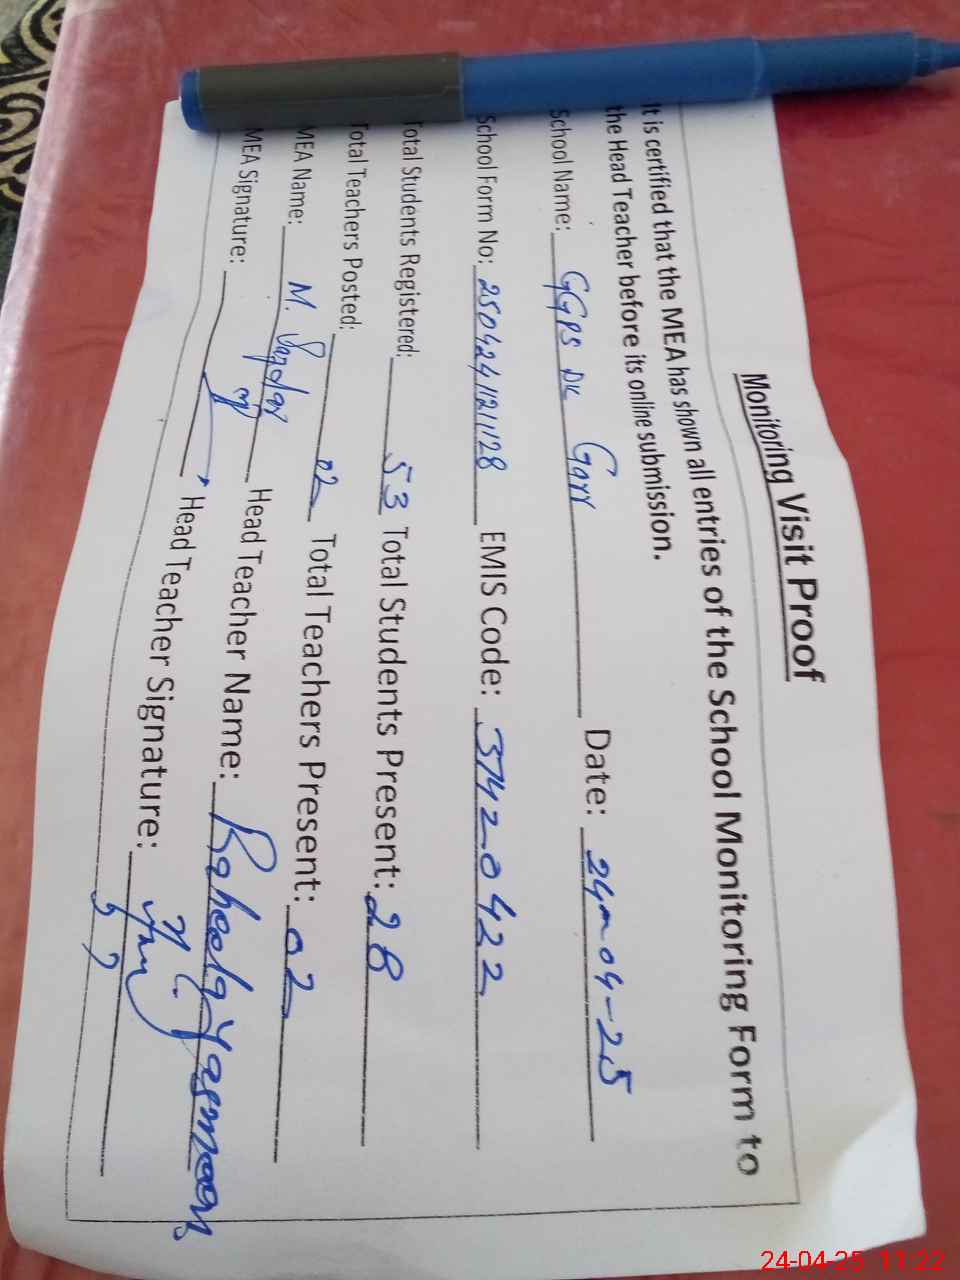 Monitoring Visit Proof
It is certified that the MEA has shown all entries of the School Monitoring Form to
the Head Teacher before its online submission.
School Name: GGPS DK Garr Date: 24-04-25
School Form No: 250424112128 EMIS Code: 37420422
Total Students Registered: 53 Total Students Present: 28
Total Teachers Posted: 02 Total Teachers Present: 02
MEA Name: M. Head Teacher Name: Raheela Yasmeen
MEA Signature: Head Teacher Signature:
24-04-25 11:22